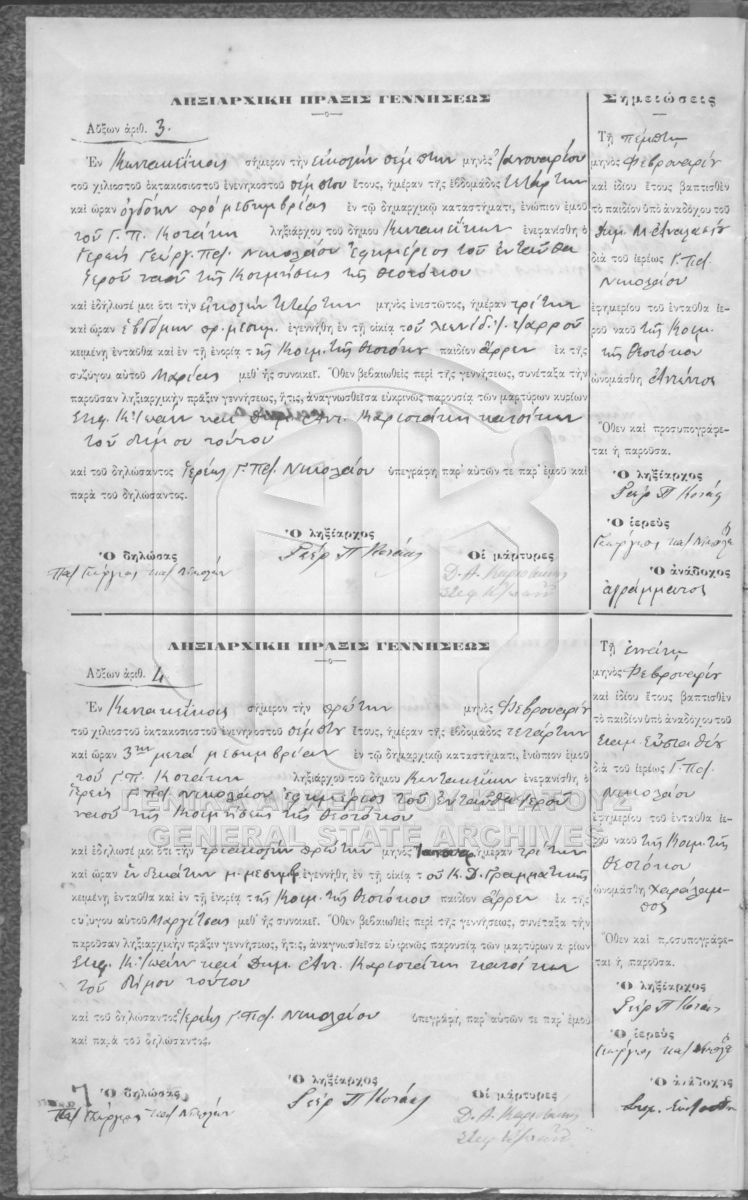 ΛΗΞΙΑΡΧΙΚΗ ΠΡΑΞΙΣ ΓΕΝΝΗΣΕΩΣ
Αὔξων ἀριθ. 3.
Ἐν σήμερον τὴν εἰκοστὴν πέμπτην μηνὸς Ἰανουαρίου
τοῦ χιλιοστοῦ ὀκτακοσιοστοῦ ἐνενηκοστοῦ πέμπτου ἔτους, ἡμέραν τῆς ἑβδομάδος Τετάρτην
καὶ ὥραν ὀγδόην πρὸ μεσημβρίας ἐν τῷ δημαρχικῷ καταστήματι, ἐνώπιον ἐμοῦ
τοῦ Γ. Π. Κοτάκη ληξιάρχου τοῦ δήμου ἐνεφανίσθη ὁ
Ἱερεὺς Γεώργ. Πα. Νικολάου Ἐφημέριος τοῦ ἐνταῦθα
Ἱεροῦ ναοῦ τῆς Κοιμήσεως τῆς Θεοτόκου
καὶ ἐδήλωσέ μοι ὅτι τὴν εἰκοστὴν τετάρτην μηνὸς ἐνεστῶτος, ἡμέραν τρίτην
καὶ ὥραν ἑβδόμην πρ. μεσημ. ἐγεννήθη ἐν τῇ οἰκίᾳ τοῦ
κειμένῃ ἐνταῦθα καὶ ἐν τῇ ἐνορίᾳ τῆς Κοιμ. τῆς Θεοτόκου παιδίον ἄρρεν ἐκ τῆς
συζύγου αὐτοῦ Μαρίας μεθ' ἧς συνοικεῖ. Ὅθεν βεβαιωθεὶς περὶ τῆς γεννήσεως, συνέταξα τὴν
παροῦσαν ληξιαρχικὴν πρᾶξιν γεννήσεως, ἥτις, ἀναγνωσθεῖσα εὐκρινῶς παρουσίᾳ τῶν μαρτύρων κυρίων
Στεφ. καὶ Δημ. Ἀντ. κατοίκων
τοῦ δήμου τούτου
καὶ τοῦ δηλώσαντος Ἱερέως Γ. Πα. Νικολάου ὑπεγράφη παρ' αὐτῶν τε παρ' ἐμοῦ καὶ
παρὰ τοῦ δηλώσαντος.
Ὁ δηλώσας
Ὁ ληξίαρχος
Οἱ μάρτυρες
Γεώρ Π Κοτάκης
Σημειώσεις
Τῇ πέμπτῃ
μηνὸς Φεβρουαρίου
καὶ ἰδίου ἔτους βαπτισθὲν
τὸ παιδίον ὑπὸ ἀναδόχου τοῦ
διὰ τοῦ ἱερέως Γ. Πα.
Νικολάου
ἐφημερίου τοῦ ἐνταῦθα ἱε-
ροῦ ναοῦ τῆς Κοιμ.
τῆς Θεοτόκου
ὠνομάσθη Ἀντώνιος
Ὅθεν καὶ προσυπογράφε-
ται ἡ παροῦσα.
Ὁ ληξίαρχος
Γεώρ Π Κοτάκης
Ὁ ἱερεὺς
Ὁ ἀνάδοχος
ἀγράμματος
ΛΗΞΙΑΡΧΙΚΗ ΠΡΑΞΙΣ ΓΕΝΝΗΣΕΩΣ
Αὔξων ἀριθ. 4
Ἐν σήμερον τὴν πρώτην μηνὸς Φεβρουαρίου
τοῦ χιλιοστοῦ ὀκτακοσιοστοῦ ἐνενηκοστοῦ πέμπτου ἔτους, ἡμέραν τῆς ἑβδομάδος τετάρτην
καὶ ὥραν 3ην μετὰ μεσημβρίαν ἐν τῷ δημαρχικῷ καταστήματι, ἐνώπιον ἐμοῦ
τοῦ Γ. Π. Κοτάκη ληξιάρχου τοῦ δήμου ἐνεφανίσθη ὁ
Ἱερεὺς Γ. Πα. Νικολάου Ἐφημέριος τοῦ ἐνταῦθα Ἱεροῦ
ναοῦ τῆς Κοιμήσεως τῆς Θεοτόκου
ΓΕΝΙΚΑ ΑΡΧΕΙΑ ΤΟΥ ΚΡΑΤΟΥΣ
GENERAL STATE ARCHIVES
καὶ ἐδήλωσέ μοι ὅτι τὴν τριακοστὴν πρώτην μηνὸς ἡμέραν τρίτην
καὶ ὥραν ἑνδεκάτην μ. μεσημβ ἐγεννήθη ἐν τῇ οἰκίᾳ τοῦ Κ. Δ. Γραμματικῆς
κειμένῃ ἐνταῦθα καὶ ἐν τῇ ἐνορίᾳ τῆς Κοιμ. τῆς Θεοτόκου παιδίον ἄρρεν ἐκ τῆς
συζύγου αὐτοῦ Μαργίτσας μεθ' ἧς συνοικεῖ. Ὅθεν βεβαιωθεὶς περὶ τῆς γεννήσεως, συνέταξα τὴν
παροῦσαν ληξιαρχικὴν πρᾶξιν γεννήσεως, ἥτις, ἀναγνωσθεῖσα εὐκρινῶς παρουσίᾳ τῶν μαρτύρων κυρίων
Στεφ. καὶ Δημ. Ἀντ. κατοίκων
τοῦ δήμου τούτου
καὶ τοῦ δηλώσαντος Ἱερέως Γ. Πα. Νικολάου ὑπεγράφη παρ' αὐτῶν τε παρ' ἐμοῦ
καὶ παρὰ τοῦ δηλώσαντος.
Ὁ δηλώσας
Ὁ ληξίαρχος
Οἱ μάρτυρες
Γεώρ Π Κοτάκης
Τῇ ἐννάτῃ
μηνὸς Φεβρουαρίου
καὶ ἰδίου ἔτους βαπτισθὲν
τὸ παιδίον ὑπὸ ἀναδόχου τοῦ
Σταμ. Εὐσταθίου
διὰ τοῦ ἱερέως Γ. Πα.
Νικολάου
ἐφημερίου τοῦ ἐνταῦθα ἱε-
ροῦ ναοῦ τῆς Κοιμ. τῆς
Θεοτόκου
ὠνομάσθη Χαράλαμ-
πος
Ὅθεν καὶ προσυπογράφε-
ται ἡ παροῦσα.
Ὁ ληξίαρχος
Γεώρ Π Κοτάκης
Ὁ ἱερεὺς
Ὁ ἀνάδοχος